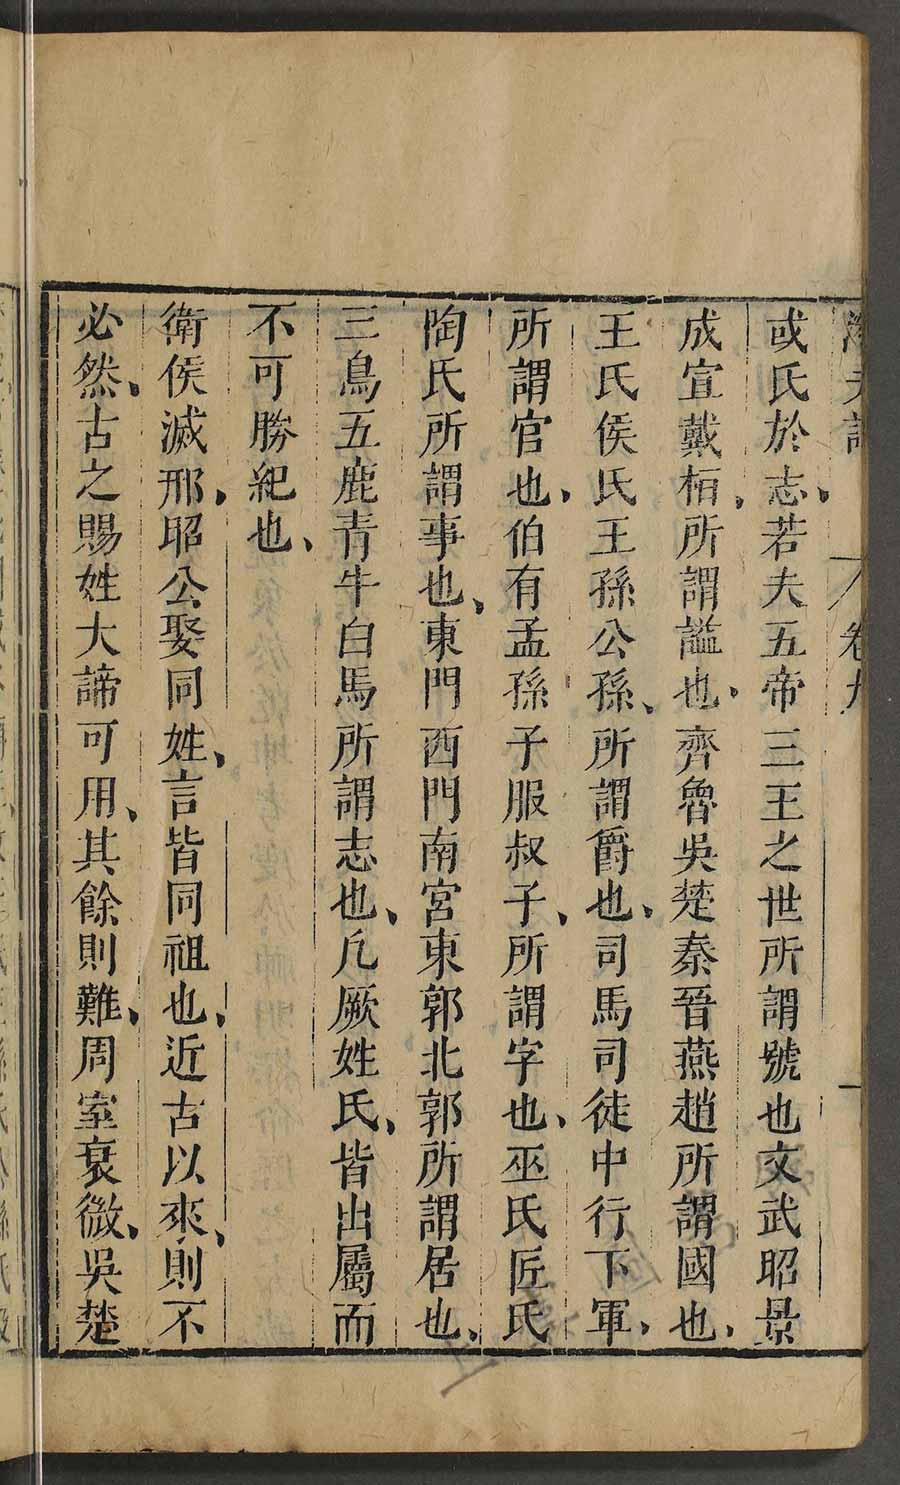 或氏於志、若夫五帝三王之世所謂號也文武昭景
成宣戴栢、所謂謚也、齊魯吳楚秦晉燕趙所謂國也、
王氏侯氏王孫公孫、所謂爵也、司馬司徒中行下軍、
所謂官也、伯有孟孫子服叔子、所謂字也、巫氏匠氏
陶氏所謂事也、東門西門南宮東郭北郭所謂居也、
三烏五鹿青牛白馬所謂志也、凢厥姓氏、皆出屬而
不可勝紀也、
衛侯滅邢、昭公娶同姓、言皆同祖也、近古以來、則不
必然、古之賜姓大諦可用、其餘則難、周室衰微、吳楚